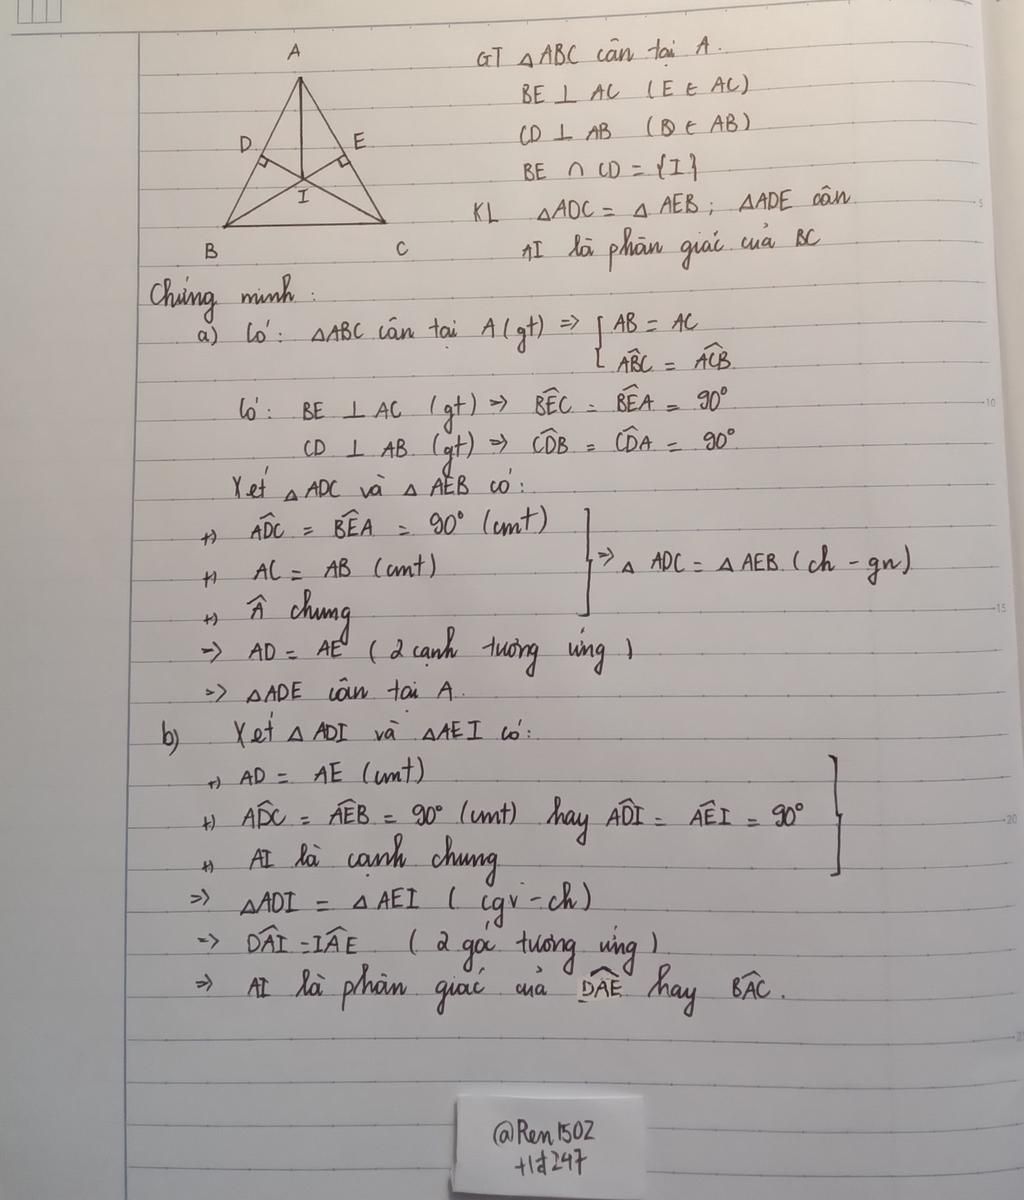 A
D
E
I
B
C
GT △ABC cân tại A.
BE ⊥ AC (E ∈ AC)
CD ⊥ AB (D ∈ AB)
BE ∩ CD = {I}
KL △ADC = △AEB; △ADE cân
AI là phân giác của BC
Chứng minh:
a) Có: △ABC cân tại A (gt) => { AB = AC
ABC^ = ACB^
Có: BE ⊥ AC (gt) => BEC^ = BEA^ = 90°
CD ⊥ AB (gt) => CDB^ = CDA^ = 90°
Xét △ADC và △AEB có:
+) ADC^ = BEA^ = 90° (cmt)
+) AC = AB (cmt)
=> △ADC = △AEB (ch - gn)
+) A^ chung
=> AD = AE (2 cạnh tương ứng)
=> △ADE cân tại A.
b) Xét △ADI và △AEI có:
+) AD = AE (cmt)
+) ADC^ = AEB^ = 90° (cmt) hay ADI^ = AEI^ = 90°
+) AI là cạnh chung
=> △ADI = △AEI (cgv - ch)
=> DAI^ = IAE^ (2 góc tương ứng)
=> AI là phân giác của DAE^ hay BAC^.
@Ren1502